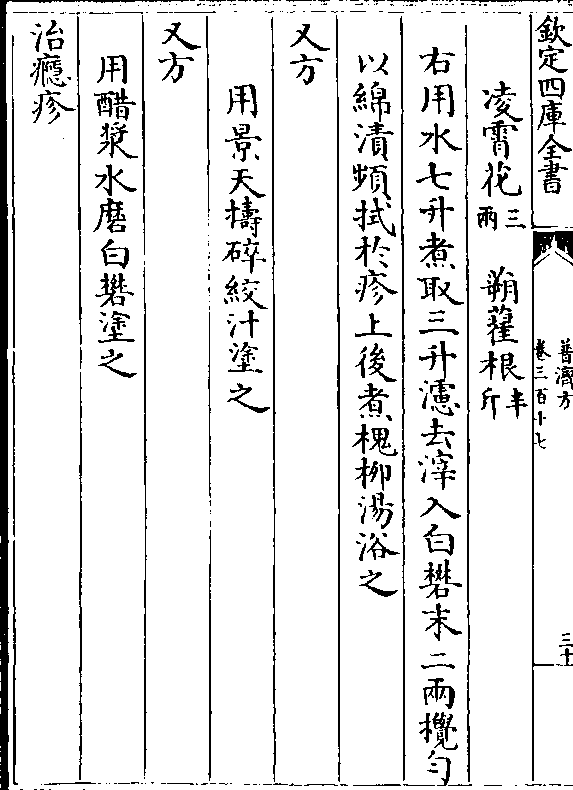 欽定四庫全書
普濟方
卷三百十七
三十
凌霄花三兩 蒴藋根半斤
右用水七升煮取三升濾去滓入白礬末二兩攪勻
以綿漬頻拭於疹上後煮槐柳湯浴之
又方
用景天擣碎絞汁塗之
又方
用醋漿水磨白礬塗之
治癮疹